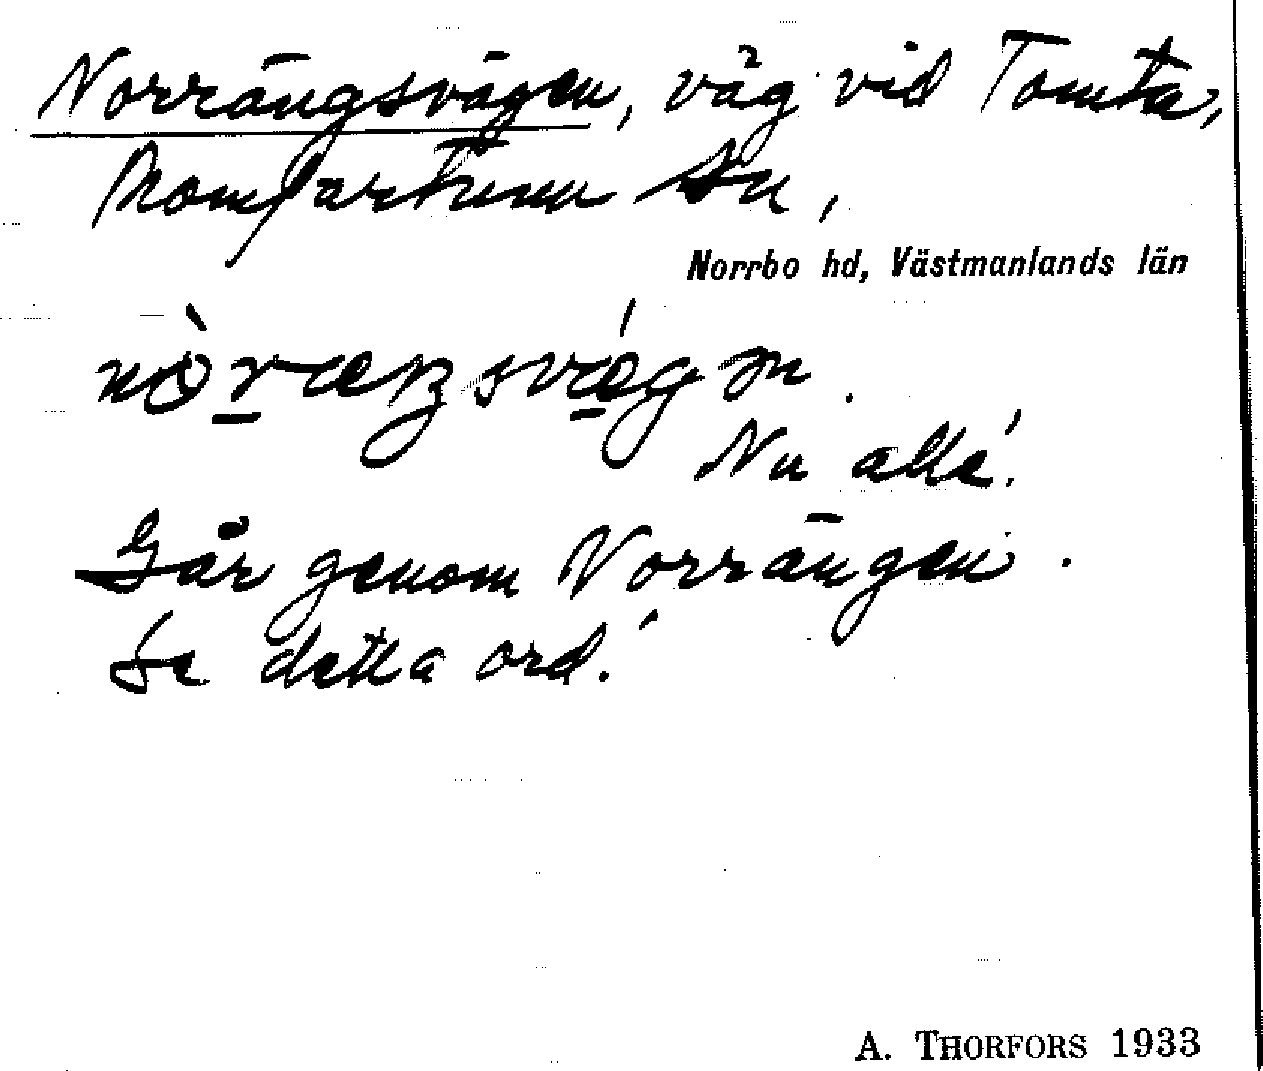 Norrängsvägen, väg vid Tomta,
Romfartuna sn,
Norrbo hd, Västmanlands län
nòræŋsvǽgən.
Nu allé!
Går genom Norrängen.
Se detta ord!
A. THORFORS 1933